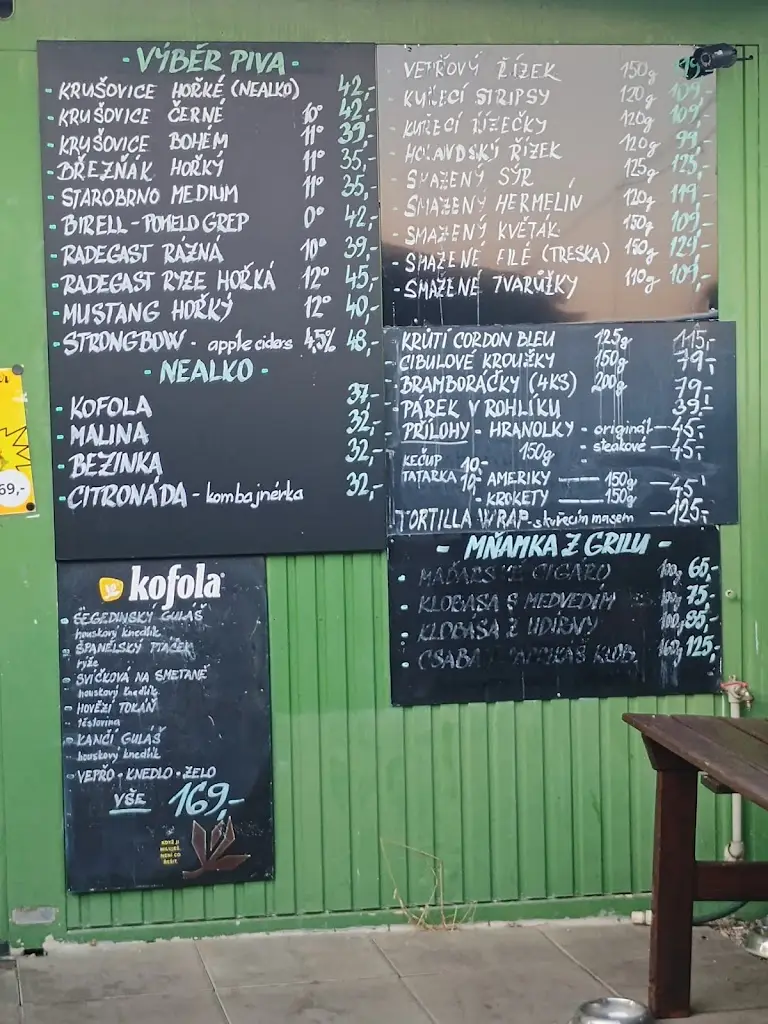 - VÝBĚR PIVA -
- KRUŠOVICE HOŘKÉ (NEALKO) 42,-
- KRUŠOVICE ČERNÉ 10° 42,-
- KRUŠOVICE BOHÉM 11° 39,-
- BŘEZŇÁK HOŘKÝ 11° 35,-
- STAROBRNO MEDIUM 11° 35,-
- BIRELL - POMELO GREP 0° 42,-
- RADEGAST RÁZNÁ 10° 39,-
- RADEGAST RYZE HOŘKÁ 12° 45,-
- MUSTANG HOŘKÝ 12° 40,-
- STRONGBOW - apple ciders 4,5% 48,-
- NEALKO -
- KOFOLA 37,-
- MALINA 32,-
- BEZINKA 32,-
- CITRONÁDA - kombajnérka 32,-
VEPŘOVÝ ŘÍZEK 150g 99,-
- KUŘECÍ STRIPSY 120g 109,-
- KUŘECÍ ŘÍZEČKY 120g 109,-
- HOLANDSKÝ ŘÍZEK 120g 99,-
- SMAŽENÝ SÝR 125g 125,-
- SMAŽENÝ HERMELÍN 120g 119,-
- SMAŽENÝ KVĚTÁK 150g 109,-
- SMAŽENÉ FILÉ (TRESKA) 150g 129,-
- SMAŽENÉ TVARŮŽKY 110g 109,-
- KRŮTÍ CORDON BLEU 125g 115,-
- CIBULOVÉ KROUŽKY 150g 79,-
- BRAMBORÁČKY (4KS) 200g 79,-
- PÁREK V ROHLÍKU 39,-
- PŘÍLOHY - HRANOLKY - originál - 45,-
150g steakové - 45,-
KEČUP 10,-
TATARKA 10,- - AMERIKY - 150g - 45,-
- KROKETY - 150g
TORTILLA WRAP - s kuřecím masem - 125,-
- MŇAMKA Z GRILU -
- MAĎARSKÉ CIGÁRO 100g 65,-
- KLOBÁSA S MEDVĚDÍM 100g 75,-
- KLOBÁSA Z UDÍRNY 100g 85,-
- CSABAI PAPRIKÁS KLOB. 160g 125,-
kofola
- SEGEDÍNSKÝ GULÁŠ
houskový knedlík
- ŠPANĚLSKÝ PTÁČEK
rýže
- SVÍČKOVÁ NA SMETANĚ
houskový knedlík
- HOVĚZÍ TOKÁŇ
těstovina
- KANČÍ GULÁŠ
houskový knedlík
- VEPŘO - KNEDLO - ZELO
VŠE 169,-
KDYŽ JI
MILUJEŠ,
NENÍ CO
ŘEŠIT
69,-